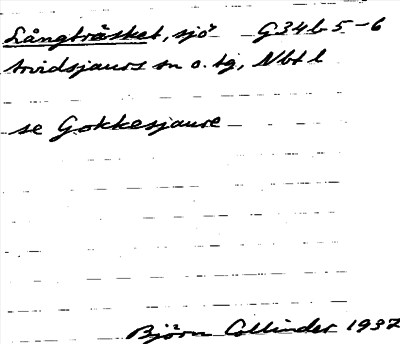 Långträsket, sjö G34b5-6
Arvidsjaurs sn o. tg, Nbt l
se Gokkesjaure
Björn Collinder 1937